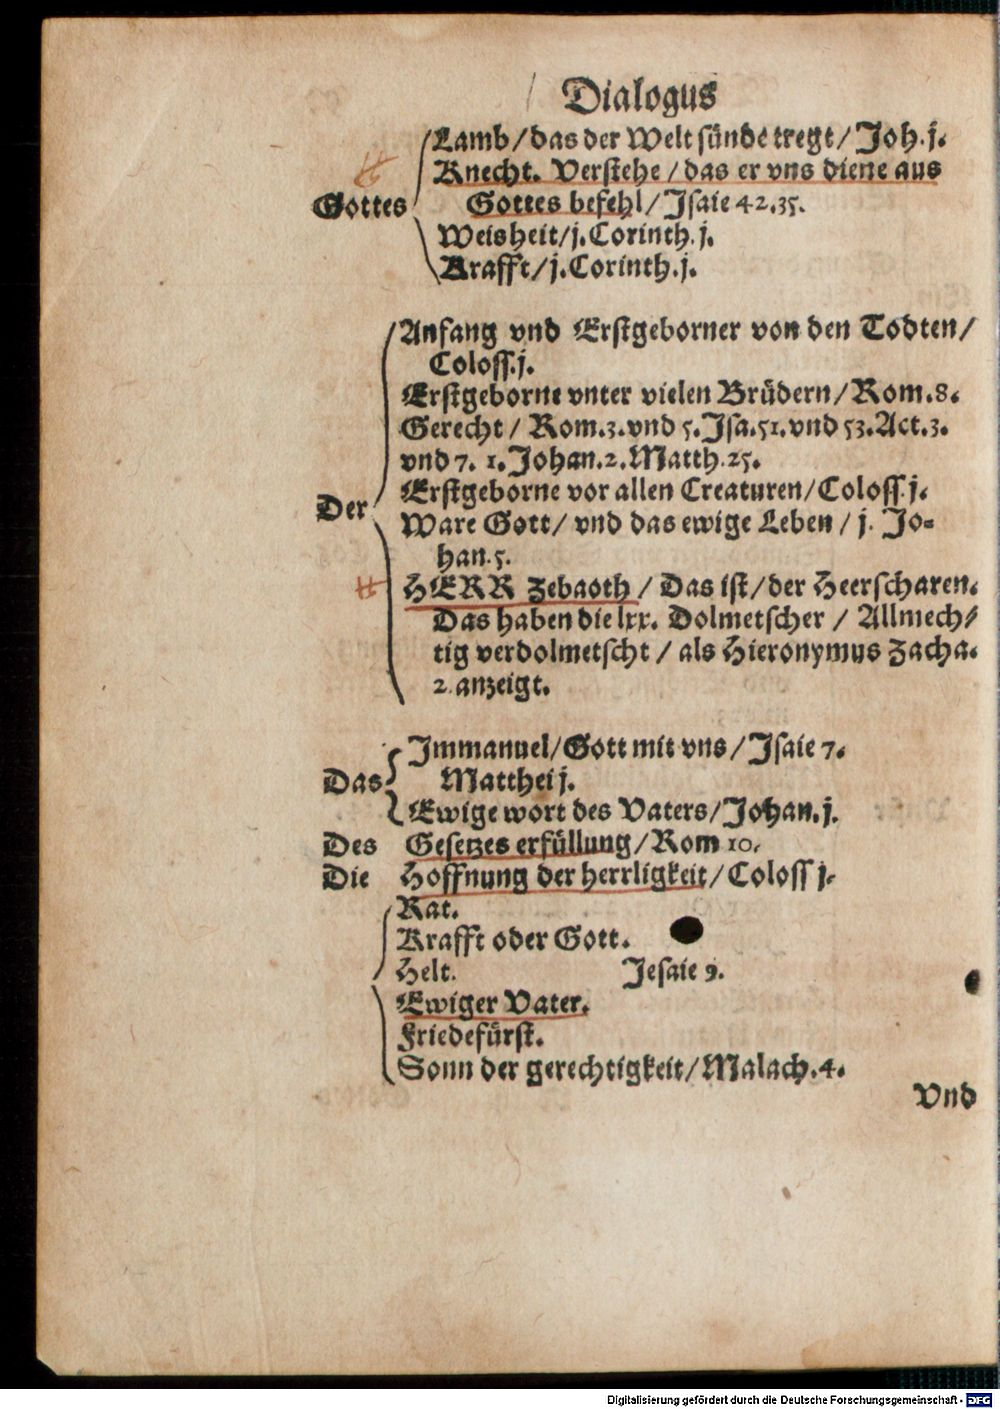 Dialogus
Lamb/das der Welt sünde tregt/Joh.j.
Knecht. Verstehe/das er vns diene aus
Gottes
Gottes befehl/Jsaie 42.35.
Weisheit/j.Corinth.j.
Krafft/j.Corinth.j.
Anfang vnd Erstgeborner von den Todten/
Coloss.j.
Erstgeborne vnter vielen Brüdern/Rom.8.
Gerecht/Rom.3.vnd 5.Jsa.51.vnd 53.Act.3.
vnd 7. 1.Johan.2.Matth.25.
Erstgeborne vor allen Creaturen/Coloss.j.
Der
Ware Gott/vnd das ewige Leben/j. Jo-
han.5.
HERR Zebaoth/Das ist/der Heerscharen.
Das haben die lxx. Dolmetscher/Allmech/
tig verdolmetscht/als Hieronymus Zacha.
2.anzeigt.
Jmmanuel/Gott mit vns/Jsaie 7.
Das
Matthei j.
Ewige wort des Vaters/Johan.j.
Des Gesetzes erfüllung/Rom 10.
Die Hoffnung der herrligkeit/Coloss j.
Rat.
Krafft oder Gott.
Helt. Jesaie 9.
Ewiger Vater.
Friedefürst.
Sonn der gerechtigkeit/Malach.4.
Vnd
Digitalisierung gefördert durch die Deutsche Forschungsgemeinschaft - DFG